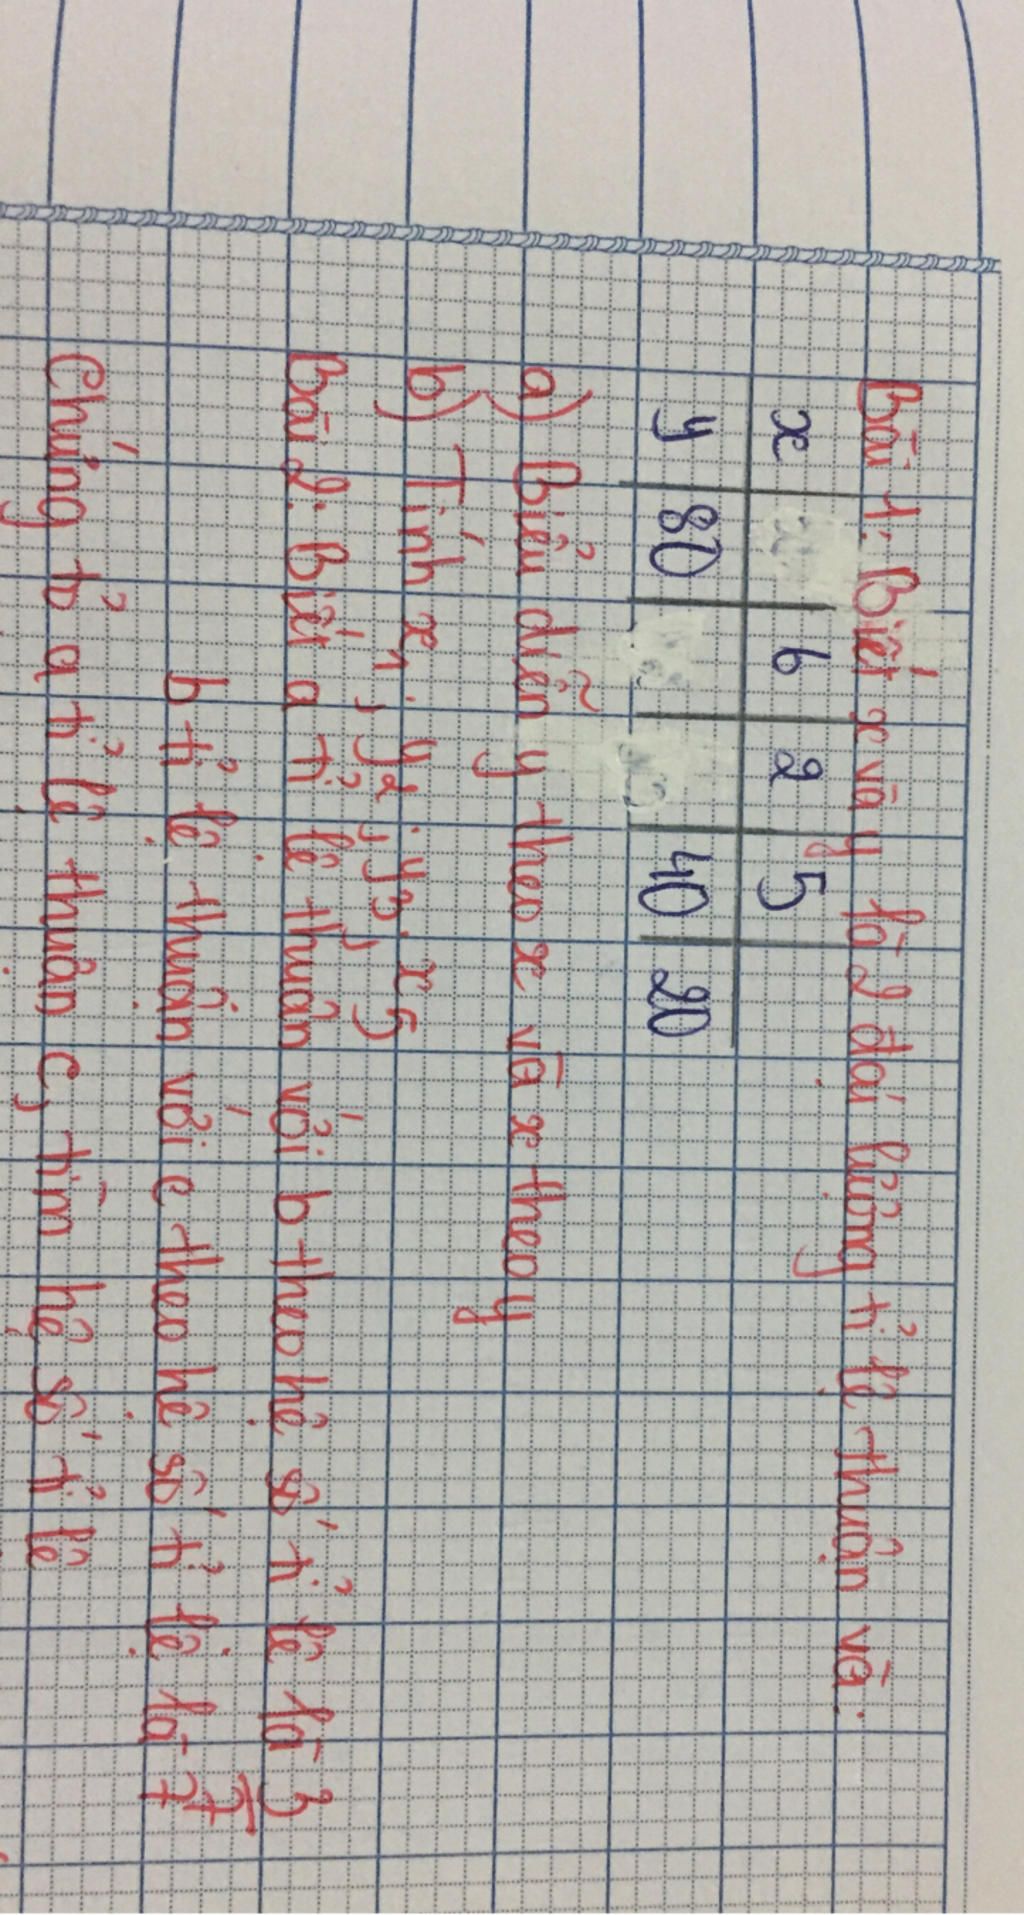 Bài 1: Biết x và y là 2 đại lượng tỉ lệ thuận và:
x 6 2 5
y 80 40 20
a) Biểu diễn y theo x và x theo y
b) Tính x1; y2; y3; x5
Bài 2: Biết a tỉ lệ thuận với b theo hệ số tỉ lệ là 3/7
b tỉ lệ thuận với c theo hệ số tỉ lệ là 7
Chứng tỏ a tỉ lệ thuận c, tìm hệ số tỉ lệ